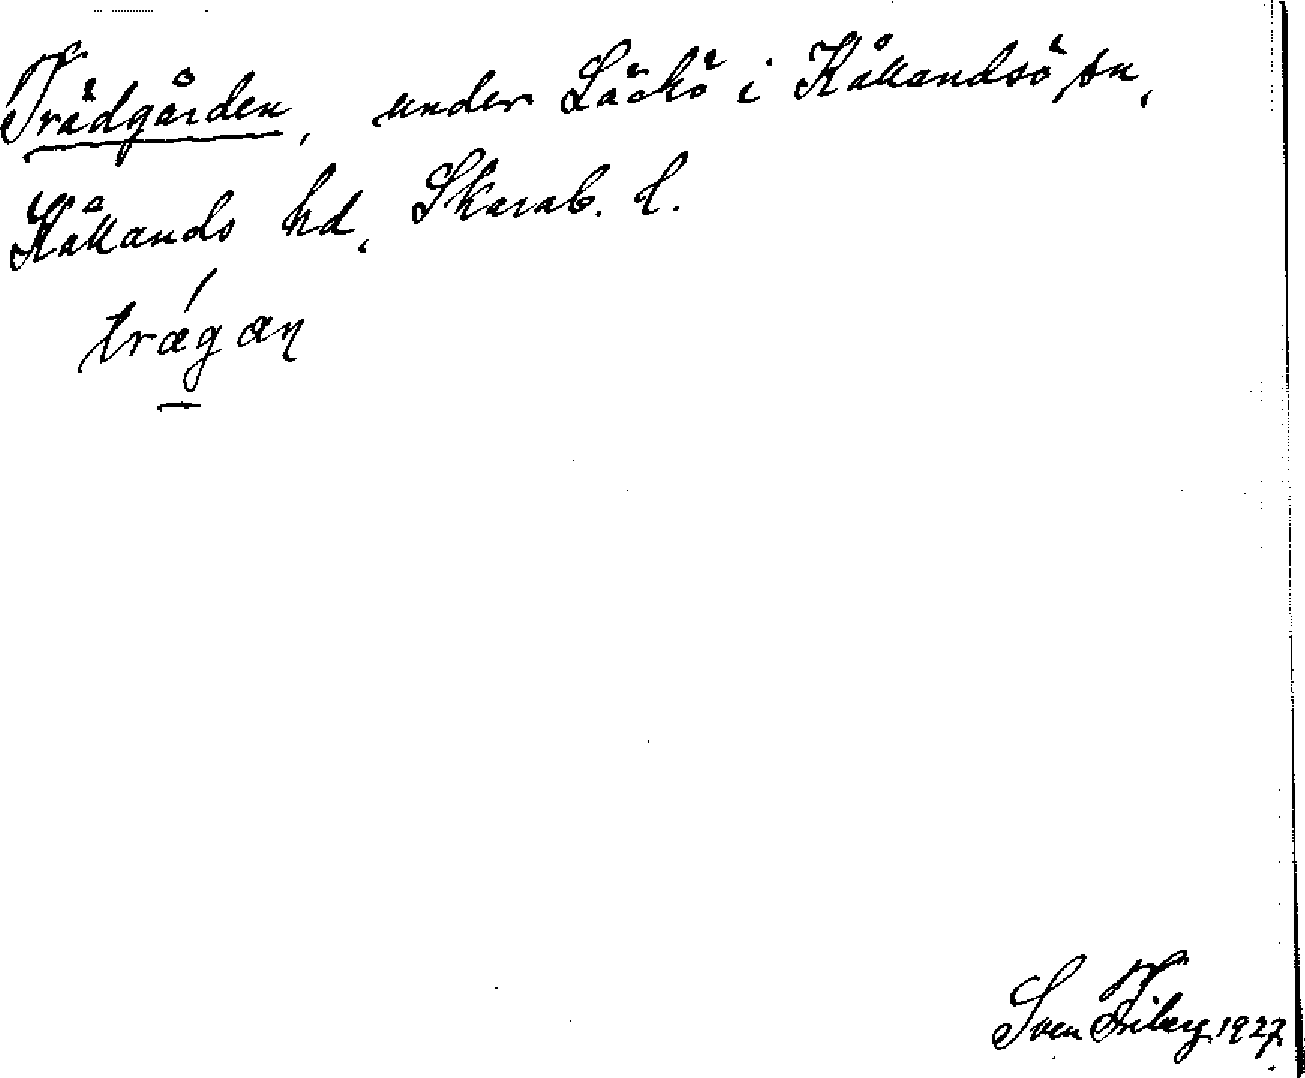 Trädgården, under Läckö i Kållandsö sn,
Kållands hd, Skarab. l.
trägan
Sven Friberg 1927